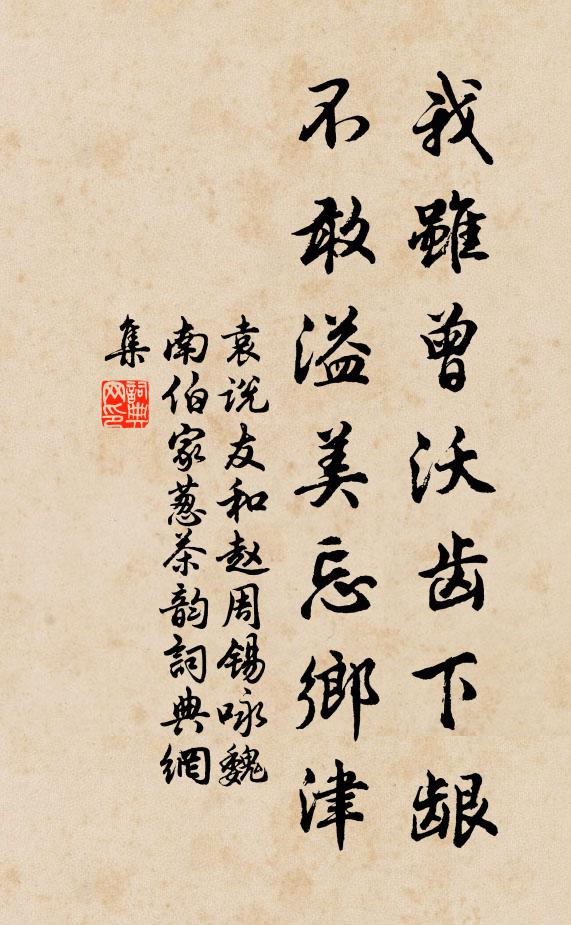 我雖曾沃齿下龈
不敢溢美忘鄉津
袁说友和赵周锡咏魏
南伯家葱茶韵詞典網
集
詞典
网印